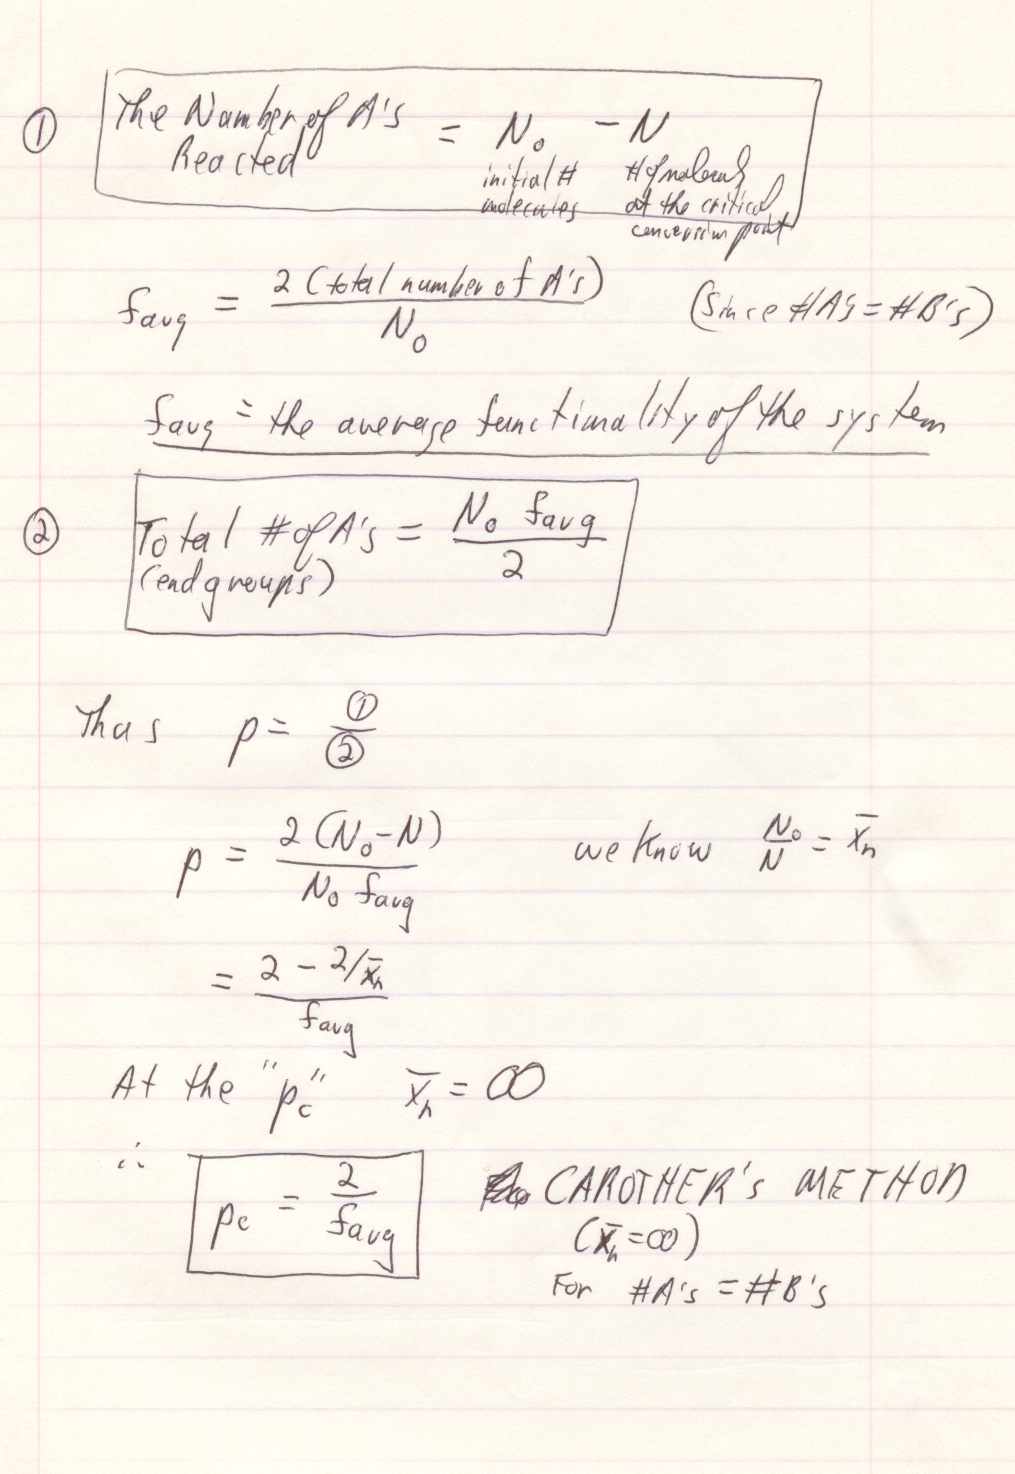 ① The Number of A's Reacted = N₀ − N
initial # molecules
# of molecules at the critical conversion point
f_avg = 2 (total number of A's) / N₀ (Since #A's = #B's)
f_avg = the average functionality of the system
② Total # of A's = N₀ f_avg / 2
(end groups)
Thus p = ① / ②
p = 2 (N₀ − N) / N₀ f_avg we know N₀/N = x̄ₙ
= 2 − 2/x̄ₙ / f_avg
At the "p_c" x̄ₙ = ∞
∴ p_c = 2 / f_avg CAROTHER'S METHOD
(x̄ₙ = ∞)
For #A's = #B's